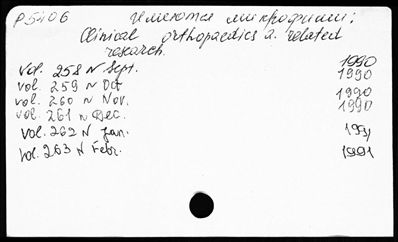 P5406 Имеются микрофиши:
Clinical orthopaedics a. related
research.
vol. 258 N Sept. 1990
vol. 259 N Oct 1990
vol. 260 N Nov. 1990
vol. 261 N Dec. 1990
vol. 262 N Jan. 1991
vol. 263 N Febr. 1991